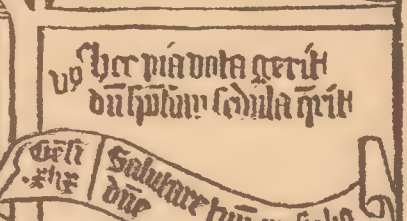 vꝰ Hec pia vota gerit
dū spōsum sedula q̄rit
Gēsi
.xlix
Salutare tuū
dn̄e